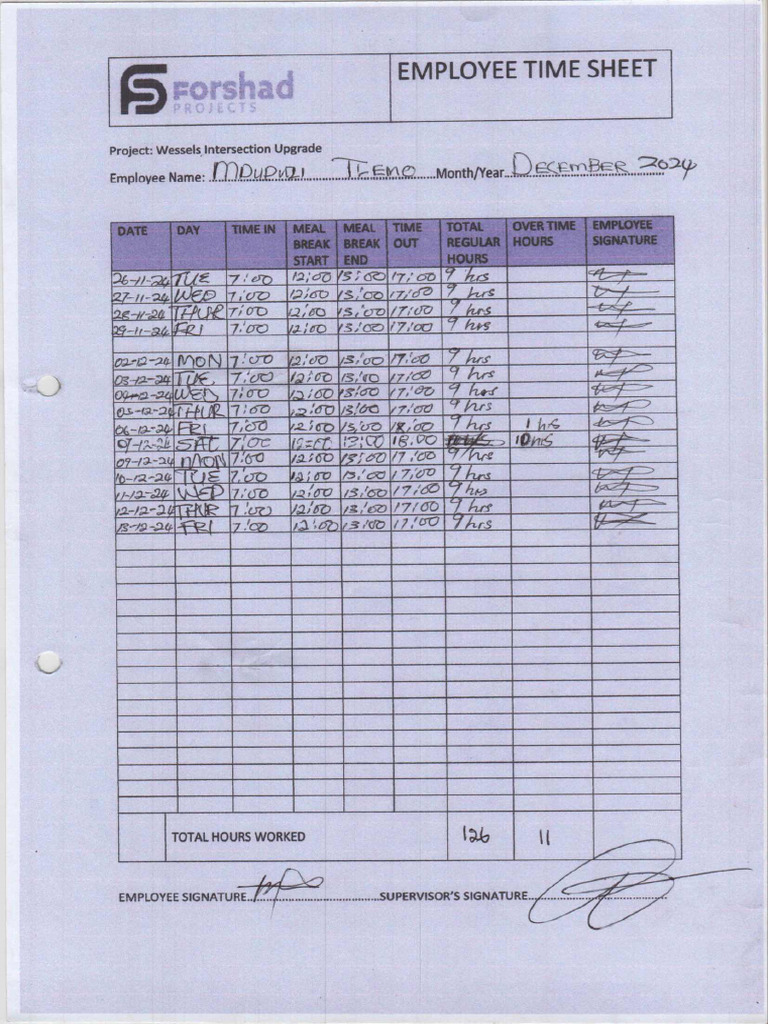 Forshad
PROJECTS
EMPLOYEE TIME SHEET
Project: Wessels Intersection Upgrade
Employee Name: Month/Year DECEMBER 2024
DATE DAY TIME IN MEAL BREAK START MEAL BREAK END TIME OUT TOTAL REGULAR HOURS OVER TIME HOURS EMPLOYEE SIGNATURE
26-11-24 TUE 7:00 12:00 13:00 17:00 9 hrs
27-11-24 WED 7:00 12:00 13:00 17:00 9 hrs
28-11-24 THUR 7:00 12:00 13:00 17:00 9 hrs
29-11-24 FRI 7:00 12:00 13:00 17:00 9 hrs
02-12-24 MON 7:00 12:00 13:00 17:00 9 hrs
03-12-24 TUE 7:00 12:00 13:00 17:00 9 hrs
04-12-24 WED 7:00 12:00 13:00 17:00 9 hrs
05-12-24 THUR 7:00 12:00 13:00 17:00 9 hrs
06-12-24 FRI 7:00 12:00 13:00 18:00 9 hrs 1 hrs
07-12-24 SAT 7:00 12:00 13:00 18:00 10 hrs
09-12-24 MON 7:00 12:00 13:00 17:00 9 hrs
10-12-24 TUE 7:00 12:00 13:00 17:00 9 hrs
11-12-24 WED 7:00 12:00 13:00 17:00 9 hrs
12-12-24 THUR 7:00 12:00 13:00 17:00 9 hrs
13-12-24 FRI 7:00 12:00 13:00 17:00 9 hrs
TOTAL HOURS WORKED 126 11
EMPLOYEE SIGNATURE SUPERVISOR'S SIGNATURE